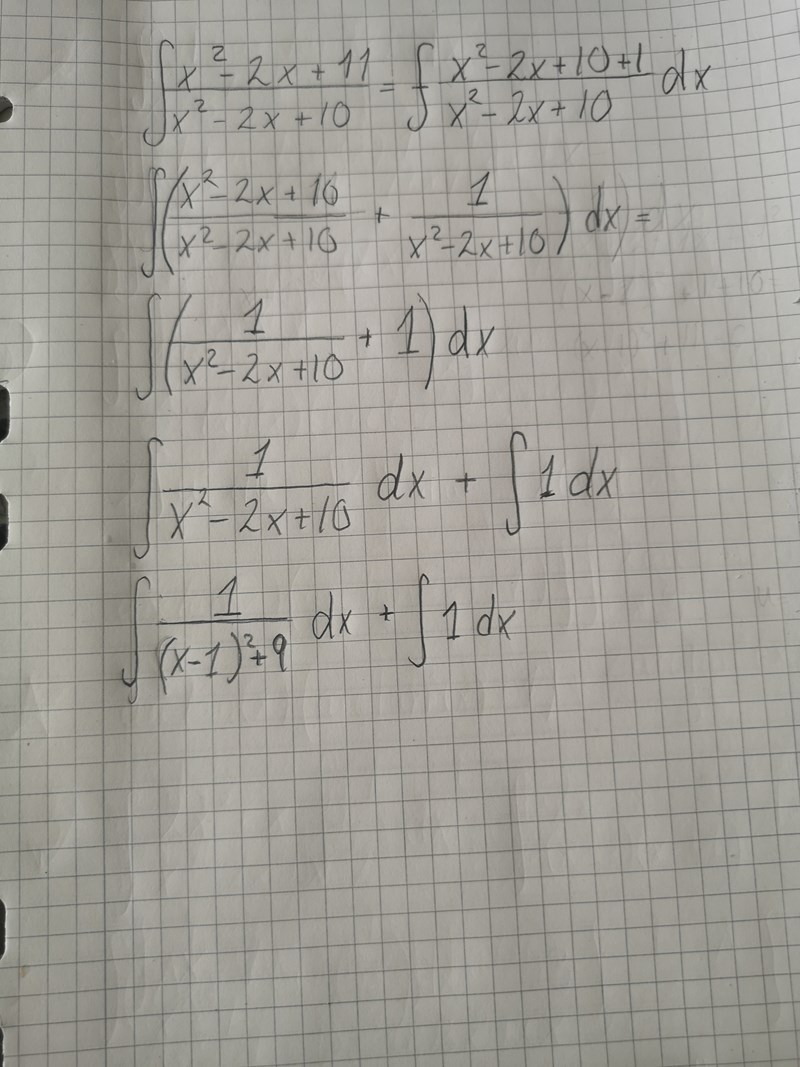 ∫ (x² - 2x + 11)/(x² - 2x + 10) = ∫ (x² - 2x + 10 + 1)/(x² - 2x + 10) dx
∫ ((x² - 2x + 10)/(x² - 2x + 10) + 1/(x² - 2x + 10)) dx =
∫ (1/(x² - 2x + 10) + 1) dx
∫ 1/(x² - 2x + 10) dx + ∫ 1 dx
∫ 1/((x-1)² + 9) dx + ∫ 1 dx